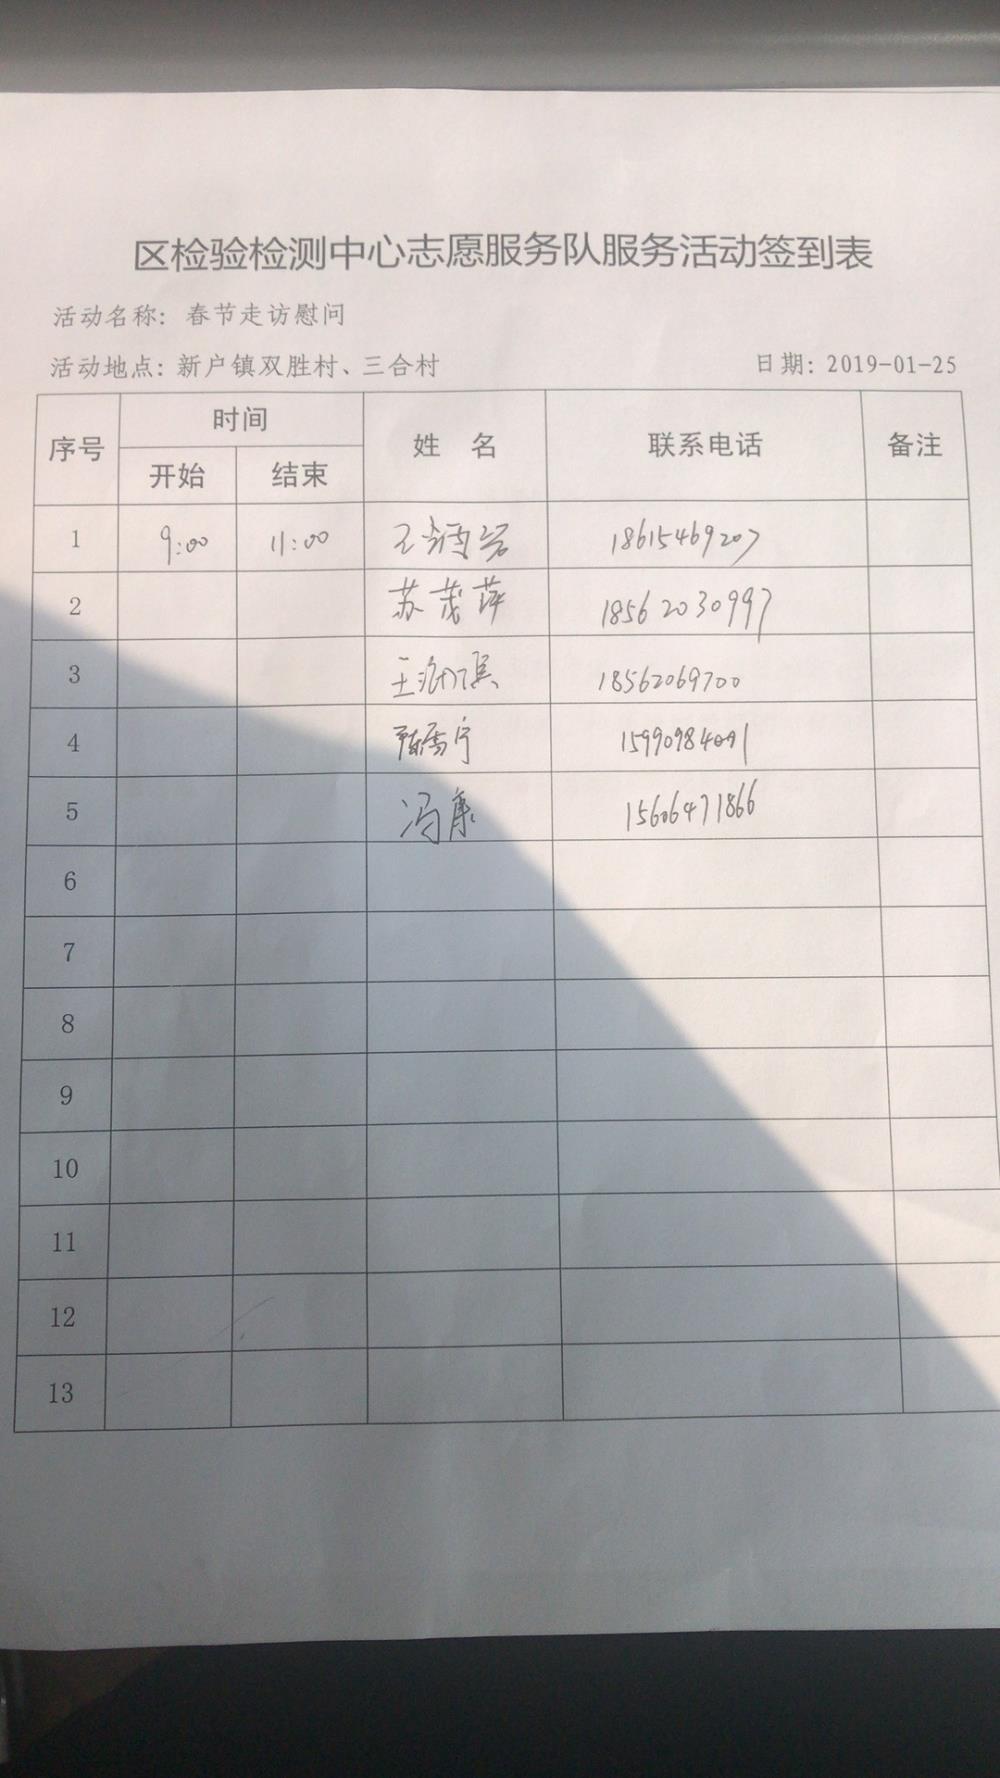 区检验检测中心志愿服务队服务活动签到表
活动名称: 春节走访慰问
活动地点: 新户镇双胜村、三合村 日期: 2019-01-25
序号 时间 姓 名 联系电话 备注
开始 结束
1 9:00 11:00 18615469207
2 苏茂萍 18562030997
3 18562069700
4 15990984001
5 冯康 15606471866
6
7
8
9
10
11
12
13